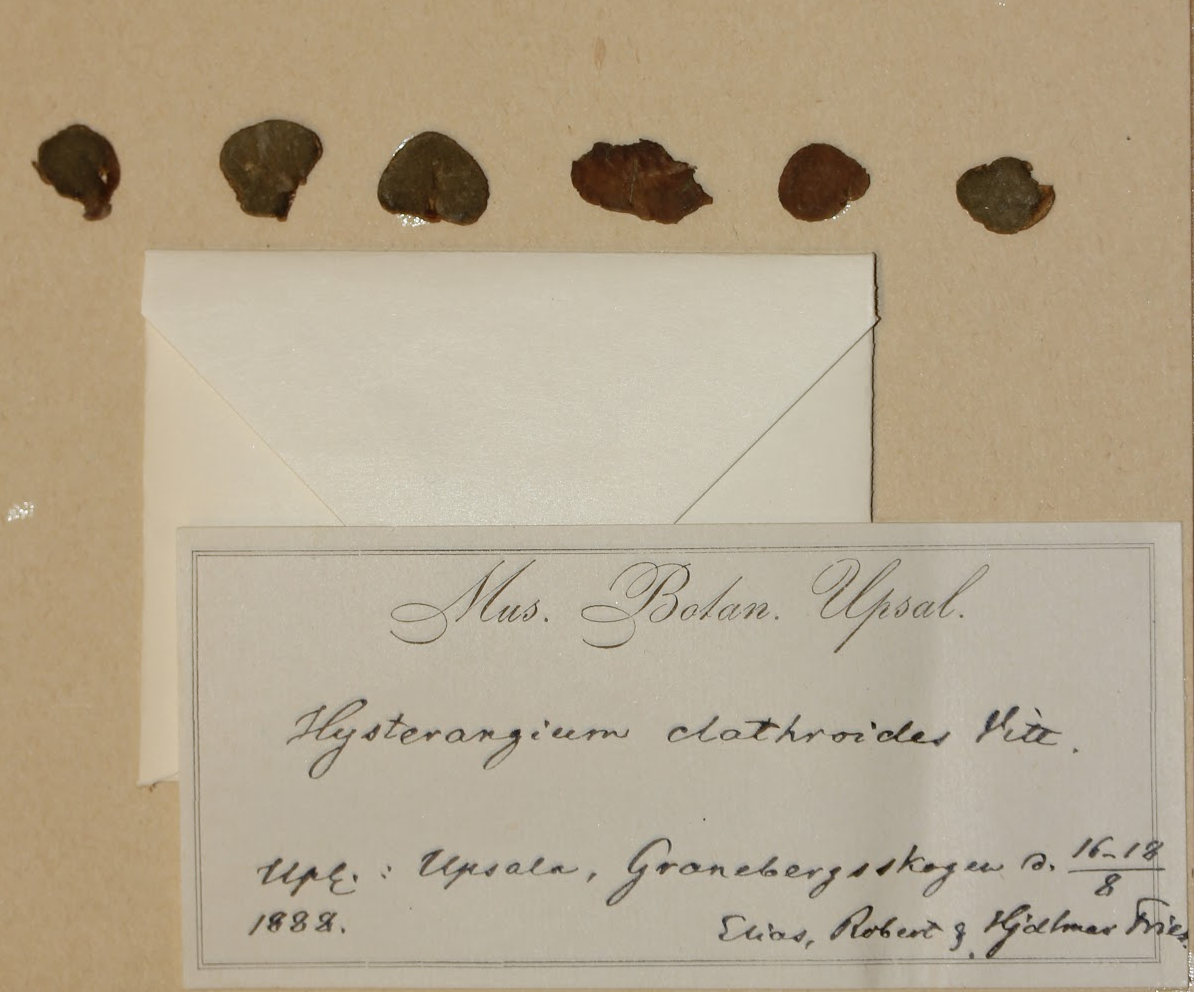 Mus. Botan. Upsal.
Hysterangium clathroides Vitt.
Upl. : Upsala, Granebergsskogen d. 16-18/8
1888.
Elias, Robert & Hjalmar Fries.